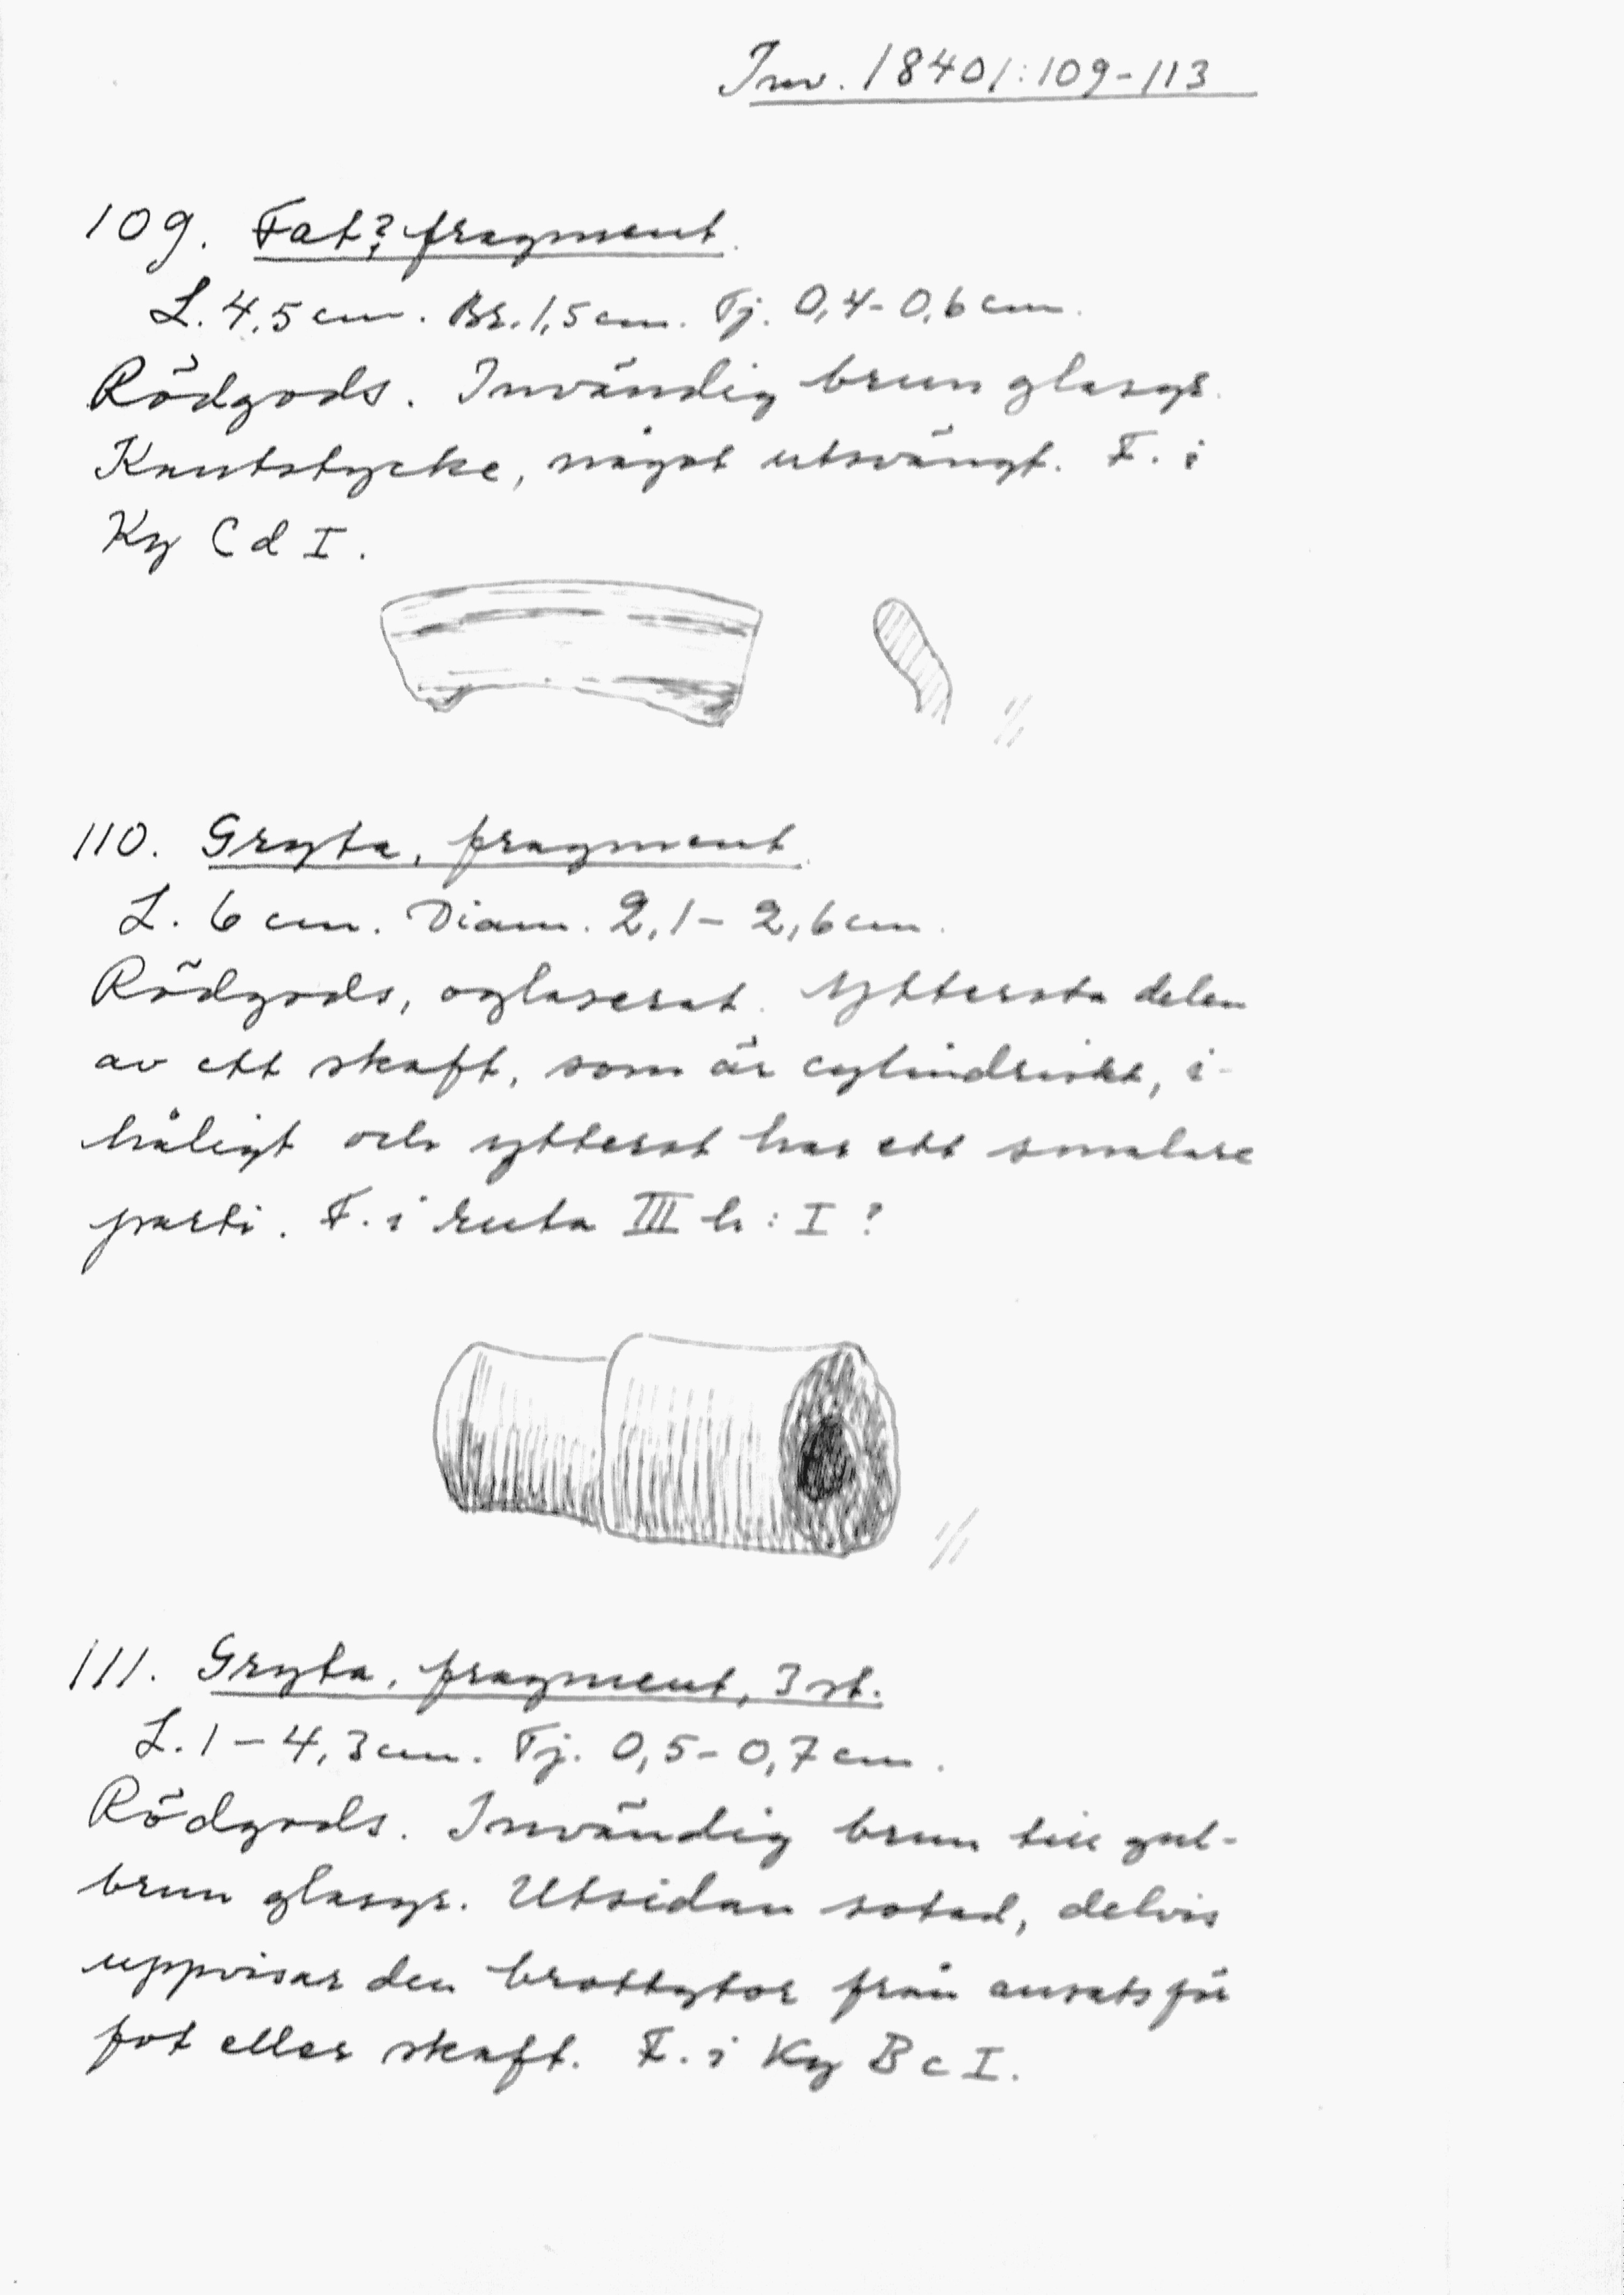 Inv. 18401:109-113
109. Fat? fragment.
L. 4,5 cm. Br. 1,5 cm. Tj. 0,4-0,6 cm.
Rödgods. Invändig brun glasyr.
Kantstycke, något utsvängt. F. i
Ky C d I.
1/1
110. Gryta, fragment.
L. 6 cm. Diam. 2,1-2,6 cm.
Rödgods, oglaserat. Yttersta delen
av ett skaft, som är cylindriskt, i-
håligt och ytterst har ett smalare
parti. F. i ruta III h: I?
1/1
111. Gryta, fragment, 3 st.
L. 1-4,3 cm. Tj. 0,5-0,7 cm.
Rödgods. Invändig brun till gul-
brun glasyr. Utsidan sotad, delvis
uppvisar den brottytor från ansats för
fot eller skaft. F. i Ky B c I.